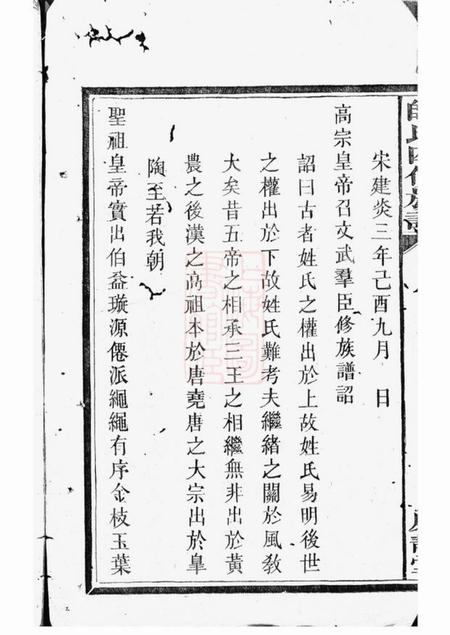 宋建炎三年己酉九月　日
高宗皇帝召文武羣臣修族譜詔
詔曰古者姓氏之權出於上故姓氏易明後世
之權出於下故姓氏難考夫繼緒之關於風教
大矣昔五帝之相承三王之相繼無非出於黃
農之後漢之高祖本於唐堯唐之大宗出於皐
陶至若我朝
聖祖皇帝實出伯益璇源僊派繩繩有序金枝玉葉